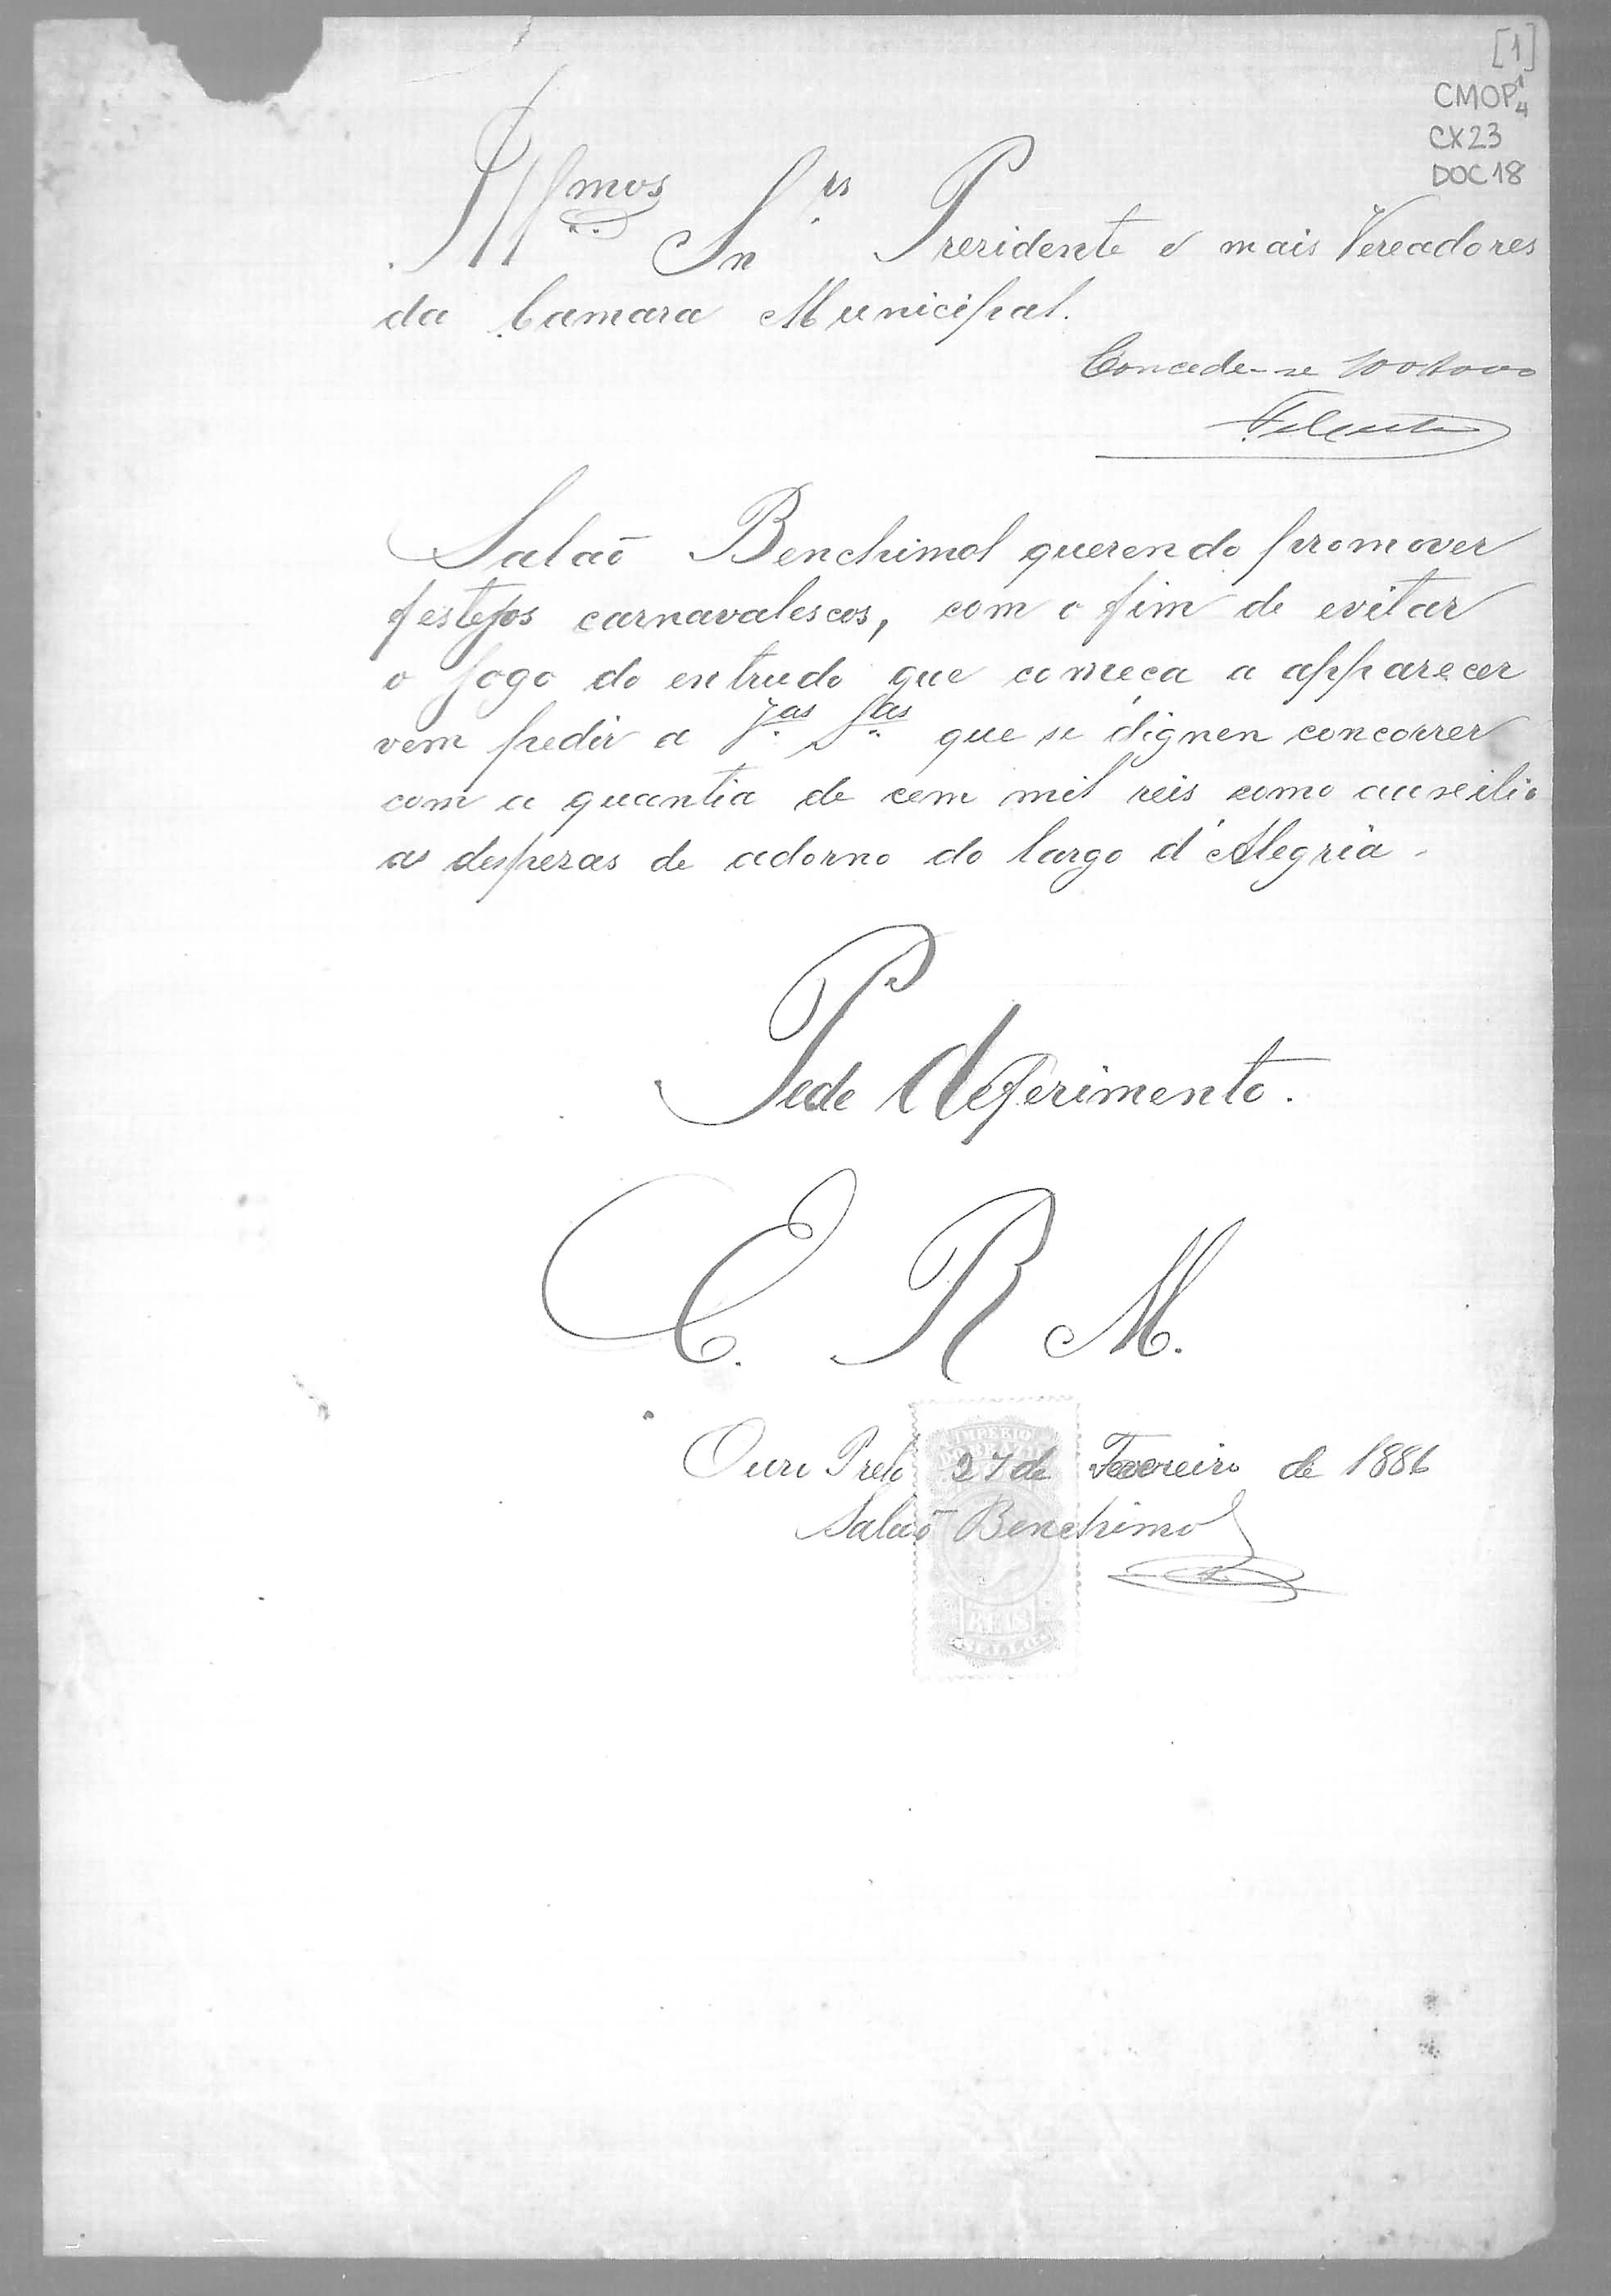 [1]
CMOP 1/4
CX23
DOC 18
Illmos Snrs Prezidente e mais Vereadores
da Camara Municipal.
Concede-se 100$000
Salaõ Benchimol querendo promover
festejos carnavalescos, com o fim de evitar
o jogo do entrudo que comeca a apparecer
vem pedir a Vas Sas que se dignen concorrer
com a quantia de cem mil reis como auxeilio
as despezas de adorno do largo d'Alegria.
Pede deferimento.
E. R. M.
Ouro Preto 27 de Fevereiro de 1886
Salaõ Benchimol
IMPERIO
DO BRAZIL
REIS
SELLO